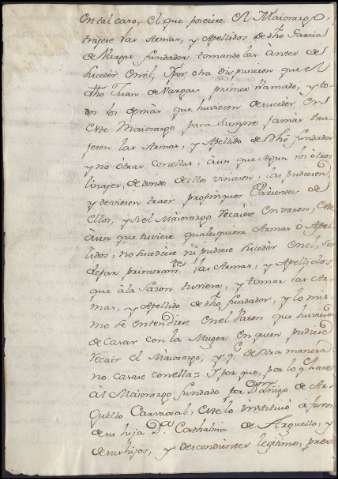 En tal caso, el que poseiere el Maiorazgo,
trajese las Armas, y Apellidos de dho Garcia
de Vargas fundador tomandolas antes de
suceder en el, y por otra disposicion que el
dho Juan de Vargas primer llamado, y to
dos los demas que huviesen de suceder en
este Maiorazgo para siempre jamas tra
jesen las Armas, y Apellido de dho fundador
y no otras con ellas, aun que segun los otros
linajes, de donde ellos viniesen, las pudiesen,
y deviesen traer propinquos Parientes de
ellos, y si el Maiorazgo recaiere en varon, este
aun que tuviere qualesquiera Armas o Ape
llidos, no sucediere ni pudiese suceder en el, sin
dejar primeramte las Armas, y Apellidos
que à la sazon tuviera, y tomar las Ar
mas, y Apellido de dho fundador, y lo mis
mo se entendiese en el Varon que huviese
de Casar con la Muger en quien pudiese
recair el Maiorazgo, y q de otra manera
no casase con ella: Y por que, por lo q hace
al Maiorazgo fundado por Dn Diego de Ar
guello Carvajal, este lo instituiò a favor
de su hija Da Cathalina de Arguello, y
de sus hijos, y descendientes legitimos, pre